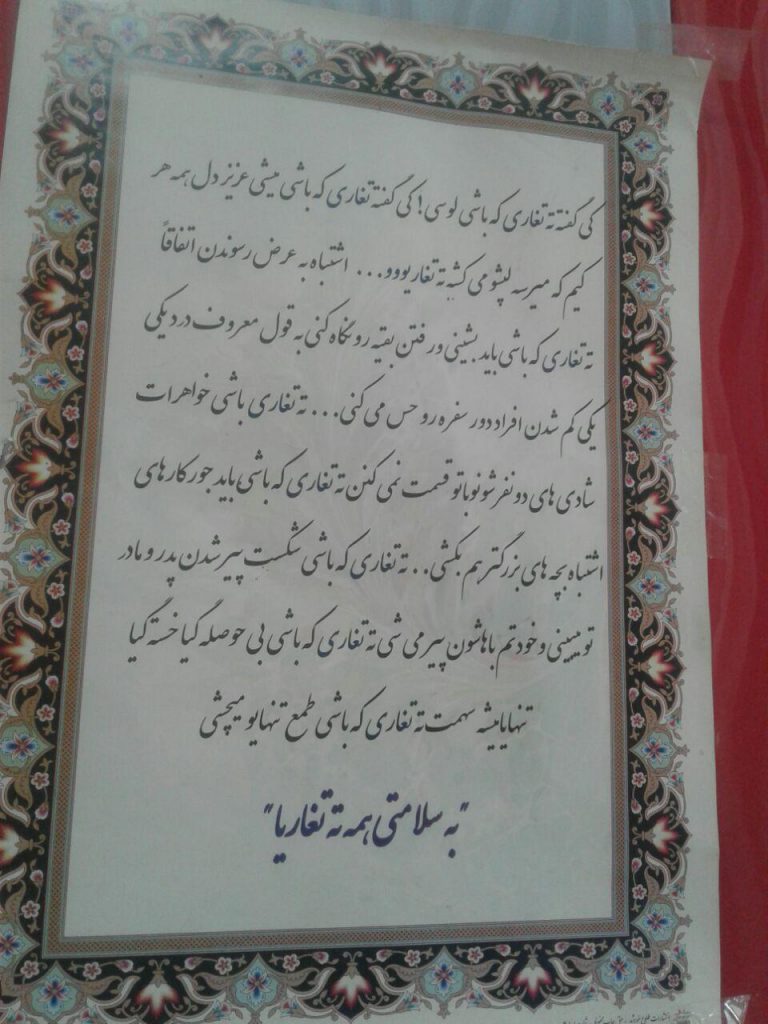 کی گفته ته تغاری که باشی لوسی! کی گفته تغاری که باشی میشی عزیز دل همه هر
کیم که میرسه لپشو می کشه ته تغاریووو... اشتباه به عرض رسوندن اتفاقاً
ته تغاری که باشی باید بشینی و رفتن بقیه رو نگاه کنی به قول معروف درد یکی
یکی کم شدن افراد دور سفره رو حس می کنی... ته تغاری باشی خواهرات
شادی های دو نفرشونو با تو قسمت نمی کنن ته تغاری که باشی باید جور کارهای
اشتباه بچه های بزرگتر هم بکشی.. ته تغاری که باشی شکست پیر شدن پدر و مادر
تو میبینی و خودتم باهاشون پیر می شی ته تغاری که باشی بی حوصله گیا خسته گیا
تنهایا میشه سهمت ته تغاری که باشی طمع تنهایو میچشی
"به سلامتی همه ته تغاریا"